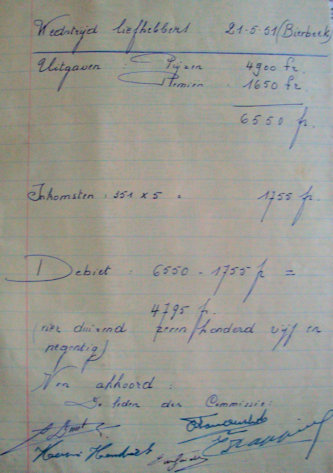 Wedstrijd liefhebbers 21-5-51 (Bierbeek)
Uitgaven : Prijzen 4900 fr.
Premien : 1650 fr.
6550 fr.
Inkomsten : 351 x 5 = 1755 fr.
Debiet : 6550 - 1755 fr =
4795 fr.
(vier duizend zeven honderd vijf en
negentig)
Voor akkoord :
De leden der Commissie :